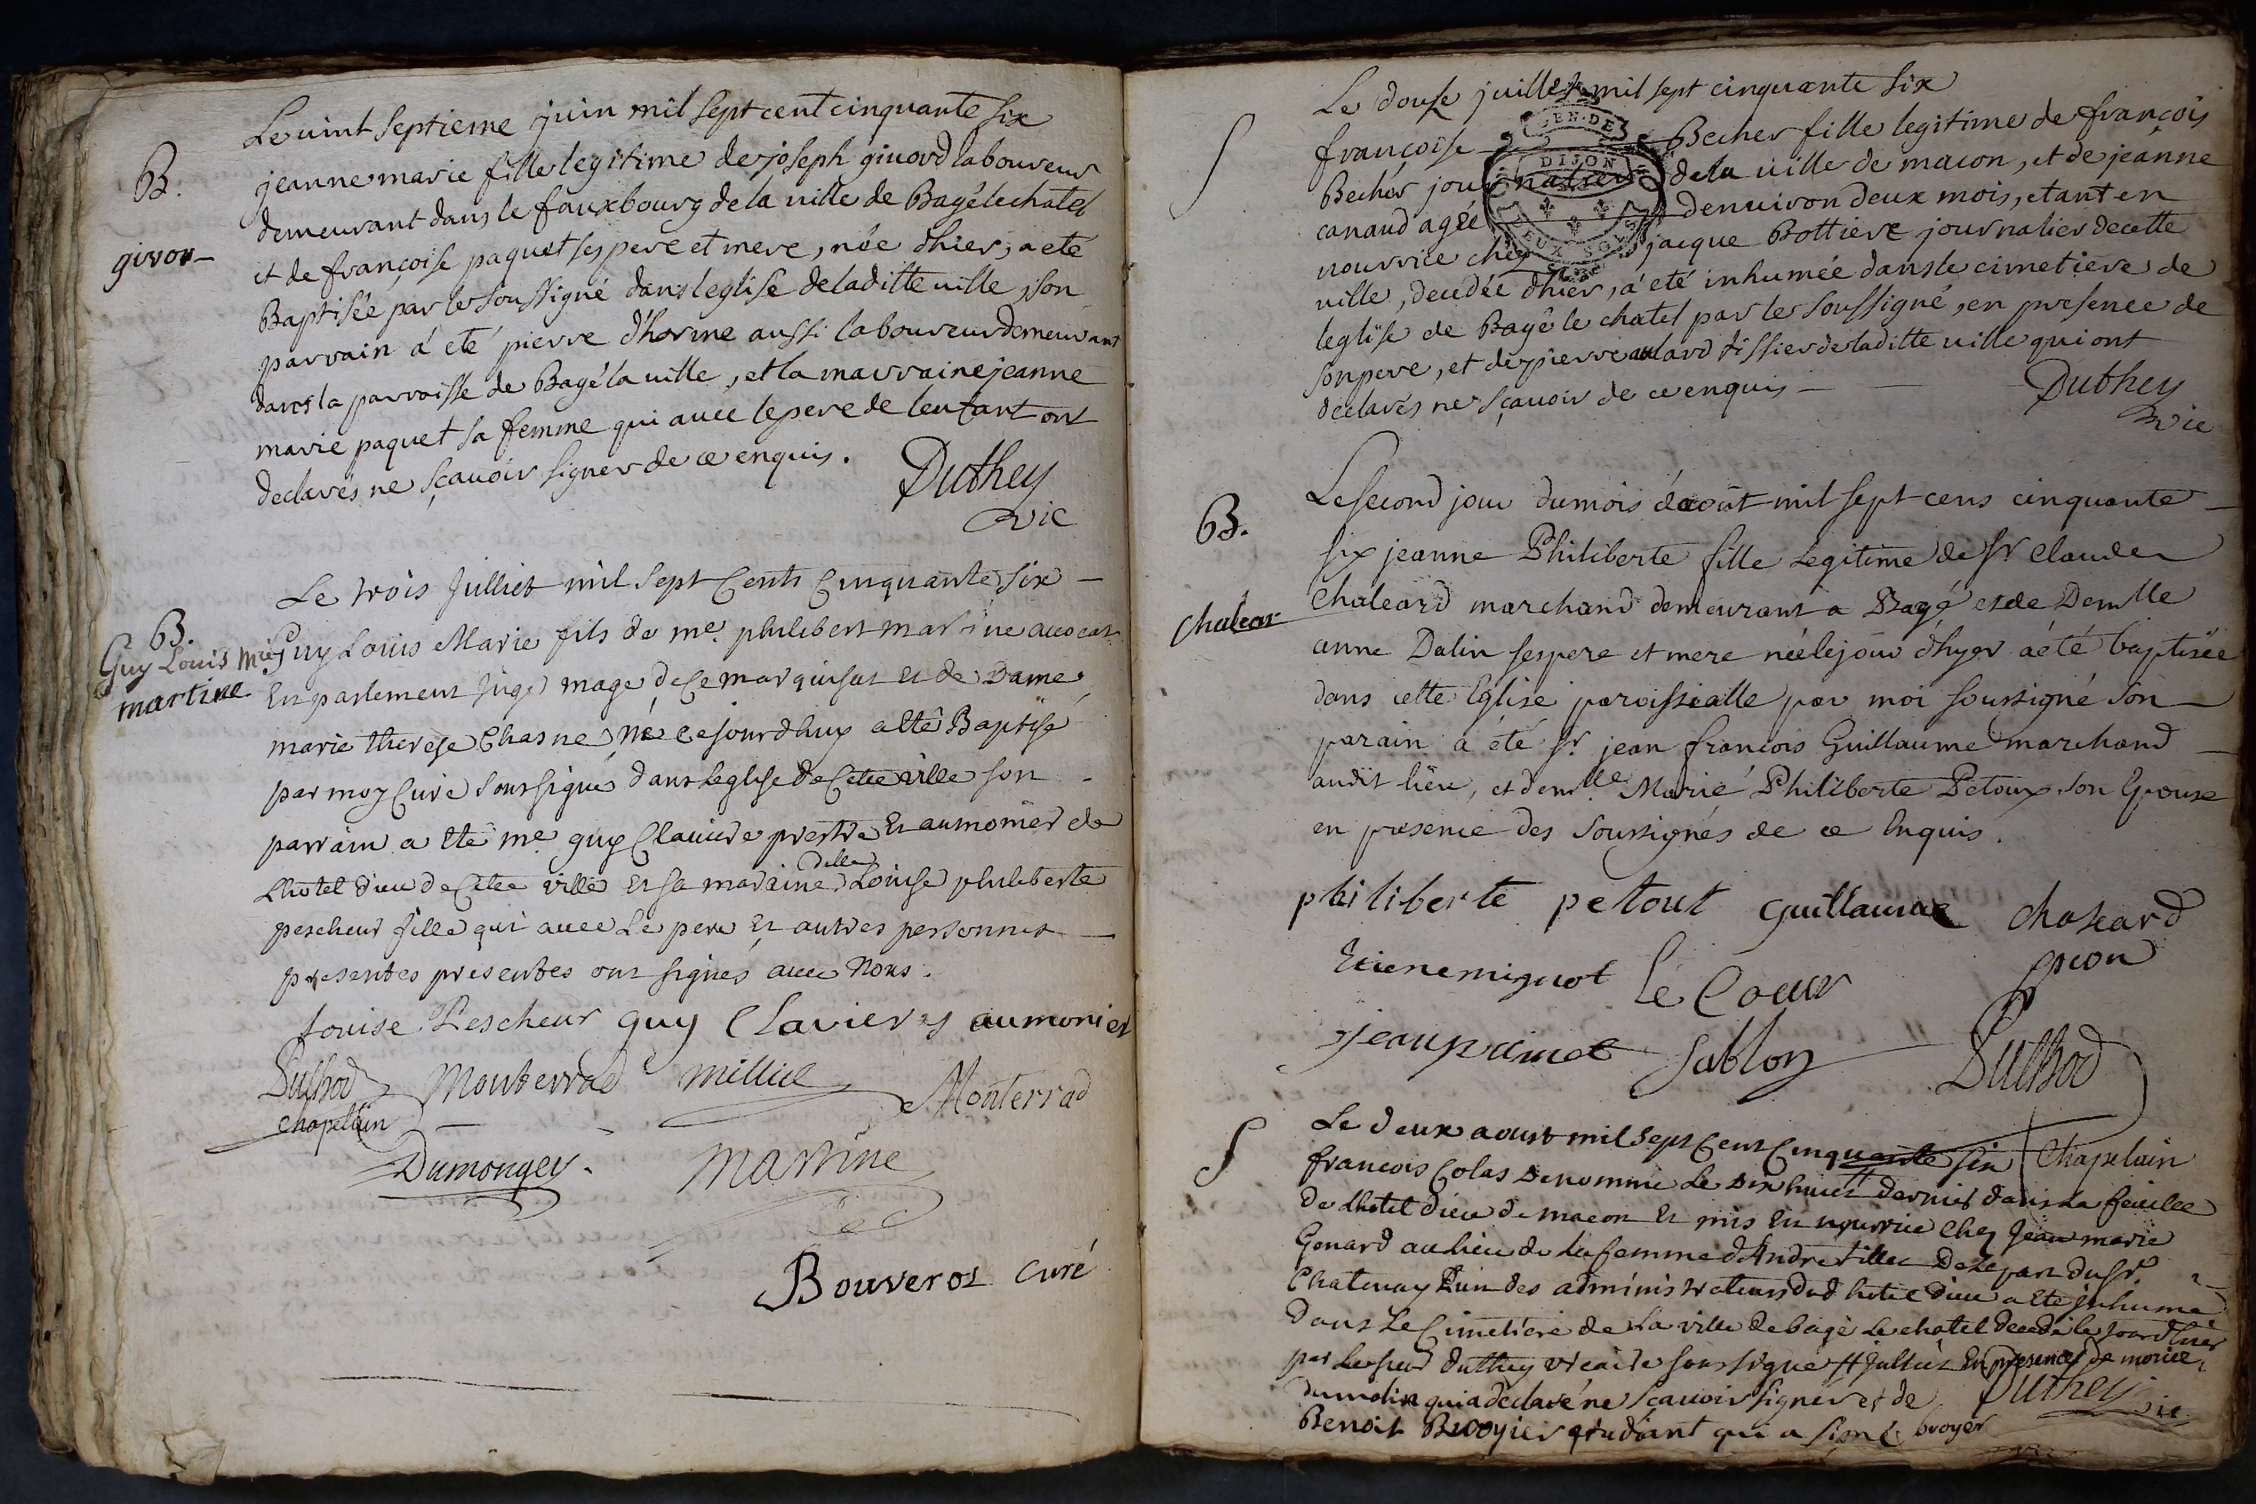 B.
givor
Le vint septieme juin mil sept cent cinquante six
jeanne marie fille legitime de joseph givord laboureur
demeurant dans le fauxbourg de la ville de Bagé le chatel
et de françoise paquet ses pere et mere, née d'hier, a eté
Baptisée par le soussigné dans leglise de laditte ville, son
parrain á eté pierre d'horme aussi laboureur demeurant
dans la parroisse de Bagé la ville, et la marraine jeanne
marie paquet sa femme qui avec le pere de lenfant ont
declarés ne sçavoir signer de ce enquis.
Duthey
vic
B.
Guy Louis Mie
martine
Le trois Julliet mil sept Cents Cinquante six
Guy Louis Marie fils de me. philibert martine avocat
En parlement Juge mage de Ce marquisat Et de Dame
marie therese Chasne né Cejourdhuy a Eté Baptisé
par moy Curé soussigné dans Leglise de Cette ville son
parrain a Eté me guy Claviere prestre Et aumonier de
Lhotel dieu de Cette ville Et sa maraine delle Louise philiberte
pescheur fille qui avec Le pere Et autres personnes
presentes presentes ont signés avec Nous.
Louise Pescheur guy Clavieres aumonier
Duthod Monterrad Monterrad
chapelain
Dumonger martine
Bouveros curé
S
Le douse juillet mil sept cinquante six
françoise Becher fille legitime de françois
Becher journalier de la ville de macon, et de jeanne
canaud agée denviron deux mois, etant en
nourrice chez jacque Bottiere journalier de cette
ville, decedée d'hier, á eté inhumée dans le cimetiere de
leglise de Bagé le chatel par le soussigné, en presence de
son pere, et de pierre tissier de laditte ville qui ont
declarés ne sçavoir de ce enquis
Duthey
vic
GEN. DE
DIJON
DEUX SOLS
B.
Chalear
Le second jour du mois d'août mil sept cens cinquante
six jeanne Philiberte fille Legitime de Sr Claude
Chaleard marchand demeurant a Bagé et de Demlle
anne Dalin ses pere et mere née le jour d'hyer a été baptisée
dans cette Eglise paroissialle par moi soussigné son
parain a été Sr. jean françois Guillaume marchand
audit lieu, et demlle Marie Philiberte Petoux son Epouse
en presence des soussignés de ce Enquis.
philiberte petout guillaume chaleard
Etiene mignot Le Coeur
jean Sablon Duthod
Chapelain
S
Le deux aoust mil sept Cent Cinquante six
francois Colas denommé Le dix huit # dernier dans La feuille
de Lhotel dieu de macon Et mis En nourrice Chez Jean marie
Gonard au lieu de La femme d'André tillet De La part du Sr.
Chatenay L'un des administrateurs dud hotel dieu a Eté Inhumé
dans Le Cimetiere de La ville de bagé Le chatel decedé le jour d'hier
par Le sieur duthey vicaire soussigné # Julliet En presence de
dumolin qui a declaré ne scavoir signer et de Duthey vic
Benoit Broyier etudiant qui a signé. broyer